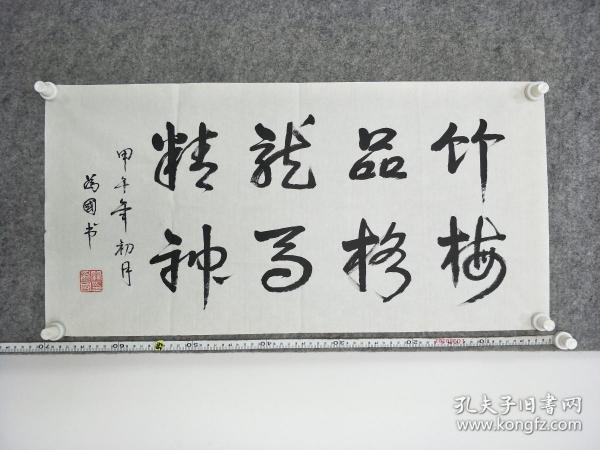 竹梅
品格
龙马
精神
甲午年初月
为国书
孔夫子旧书网
www.kongfz.com